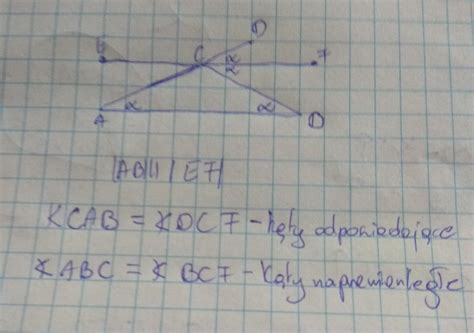 D
E C α F
α
A α α B
|AB| || |EF|
∢CAB = ∢DCF - kąty odpowiadające
∢ABC = ∢BCF - kąty naprzemianległe